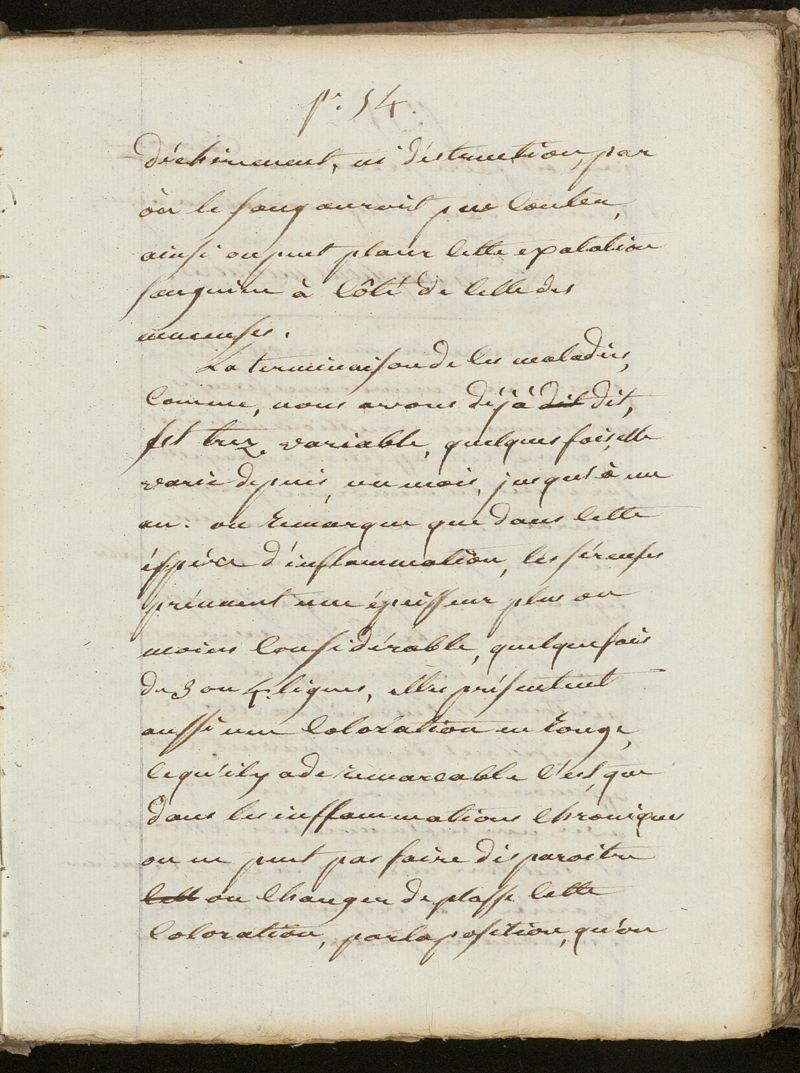 pe. 54.
déchirement, ni déstruction, par
où le sang auroit pue couler,
ainsi on peut placer cette exalation
sanguine à côté de celle des
muceuses.
La terminaison de ces maladies,
comme, nous avons déjà dit dit,
est trez variable, quelques fois, elle
varie depuis, un mois, jusqu'à un
an: on remarque que dans cette
éspéce d'inflammation, les séreuses
prénnent une épeisseur plus ou
moins considérable, quelque fois
de 3 ou 4. lignes, elles présentent
aussi une coloration en rouge,
ce qu'il y a de remarcable c'est, que
dans les inffammations chroniques
on ne peut pas faire disparoitre
cett ou changer de plasse cette
coloration, par la position, qu'on